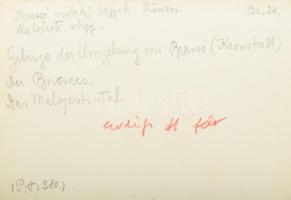 Brassó vidéki hegyek. Bucsecs.
Malojesti völgy.
Br. 24.
Gebirge der Umgebung von Brassó (Kronstadt)
Der Bucsecs.
Das Malojesti-Tal.
erdélyi
(P.H: 380.)